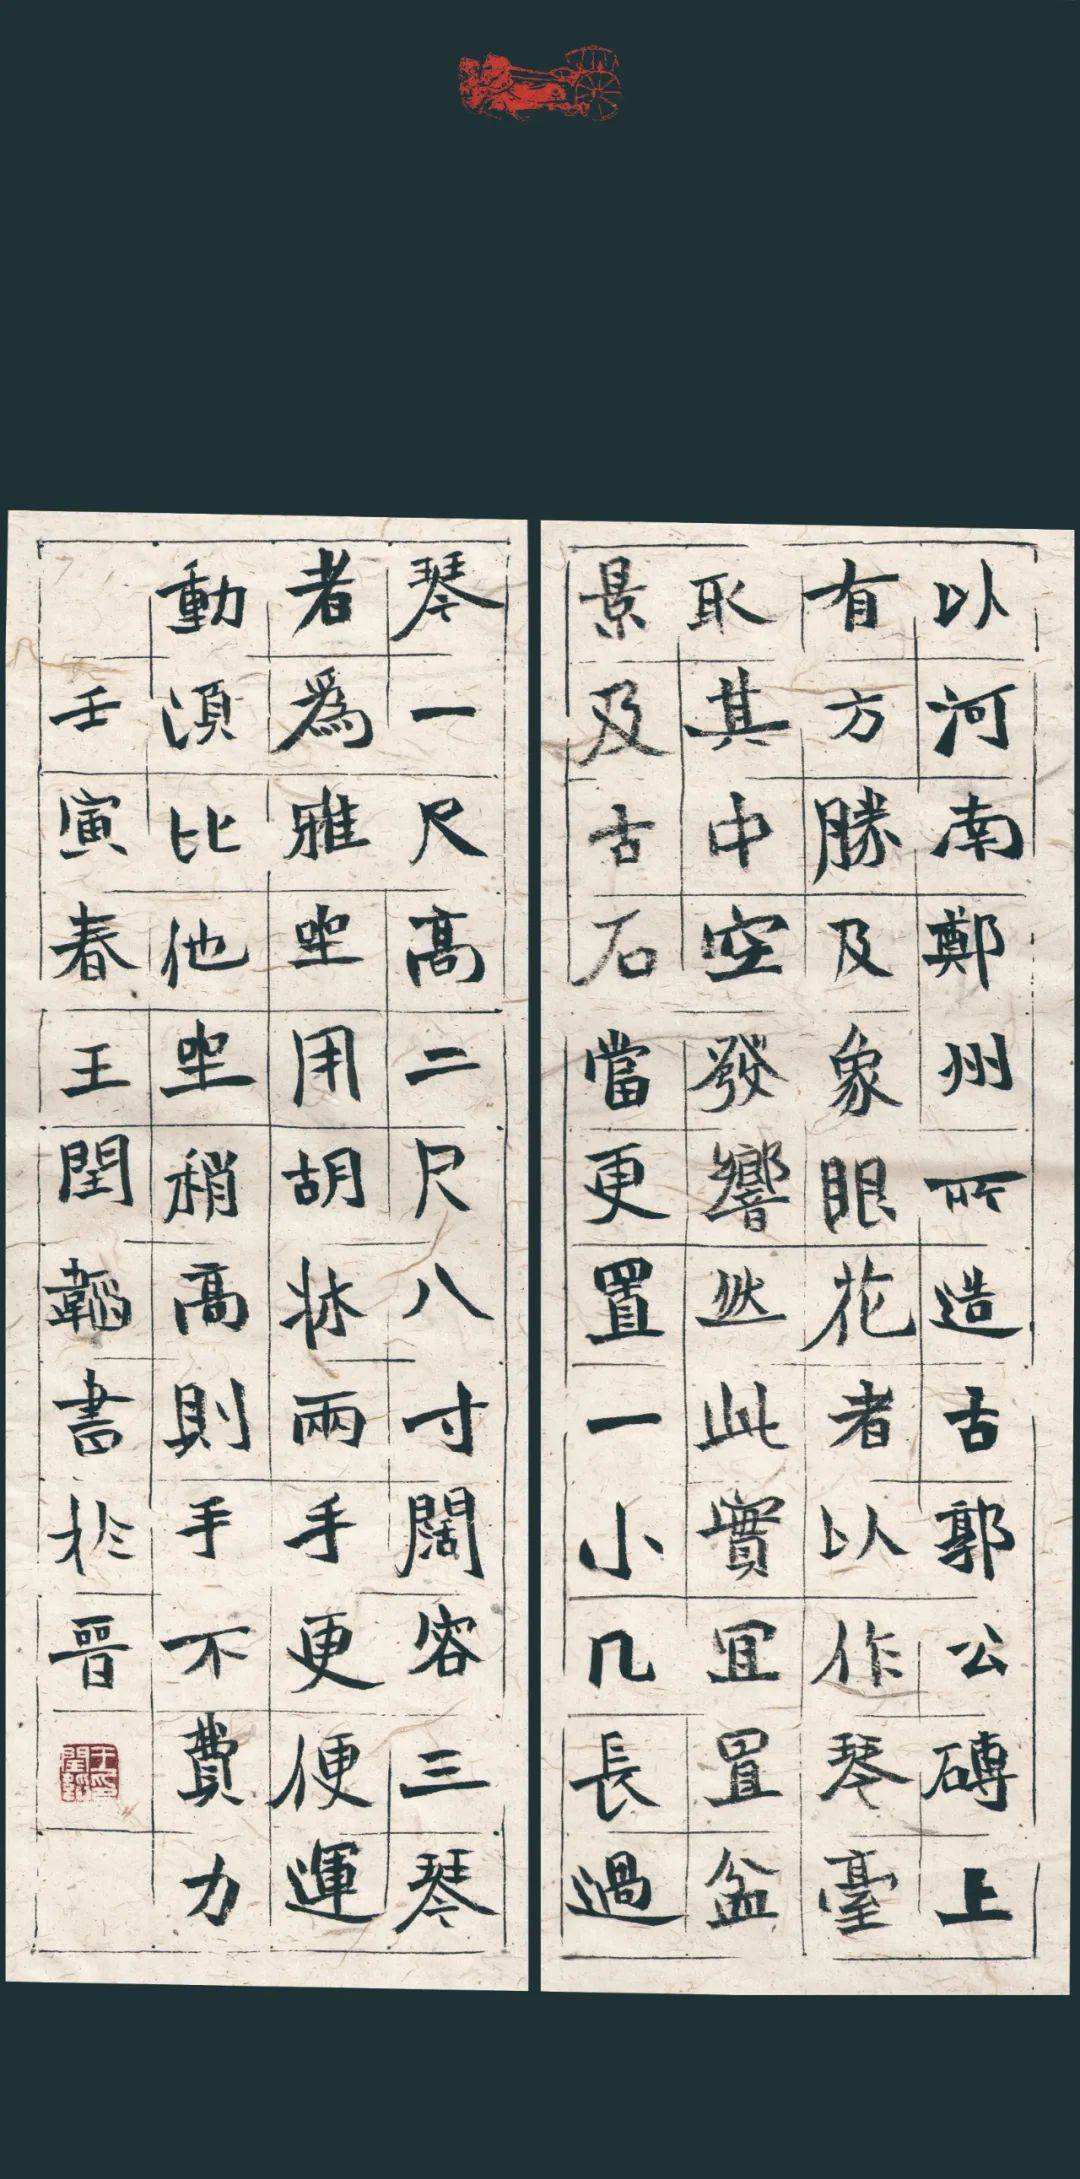 以河南鄭州所造古郭公磚上
有方勝及象眼花者以作琴臺
取其中空發響然此實宜置盆
景及古石當更置一小几長過
琴一尺高二尺八寸闊容三琴
者為雅坐用胡牀兩手更便運
動須比他坐稍高則手不費力
壬寅春王閏韜書於晉